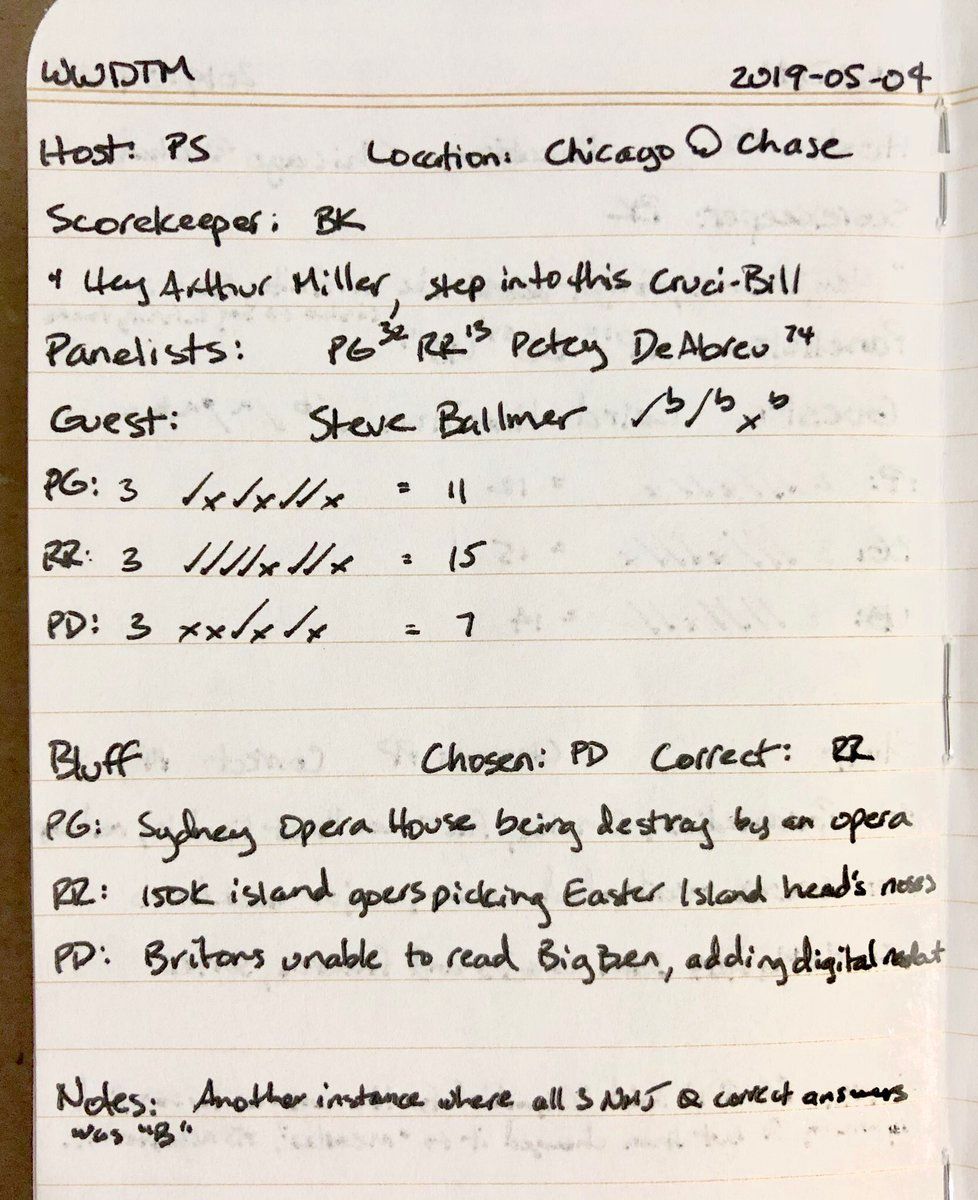 WWDTM 2019-05-04
Host: PS Location: Chicago @ Chase
Scorekeeper: BK
" Hey Arthur Miller, step into this Cruci-Bill
Panelists: PG 32 RR 13 Petey DeAbreu 74
Guest: Steve Ballmer ✓b ✓b xb
PG: 3 ✓x✓x✓✓x = 11
RR: 3 ✓✓✓✓x✓✓x = 15
PD: 3 xx✓x✓x = 7
Bluff Chosen: PD Correct: RR
PG: Sydney Opera House being destroy by an opera
RR: 150K island goers picking Easter Island head's noses
PD: Britons unable to read Big Ben, adding digital
Notes: Another instance where all 3 NMJ Q correct answers
was "B"